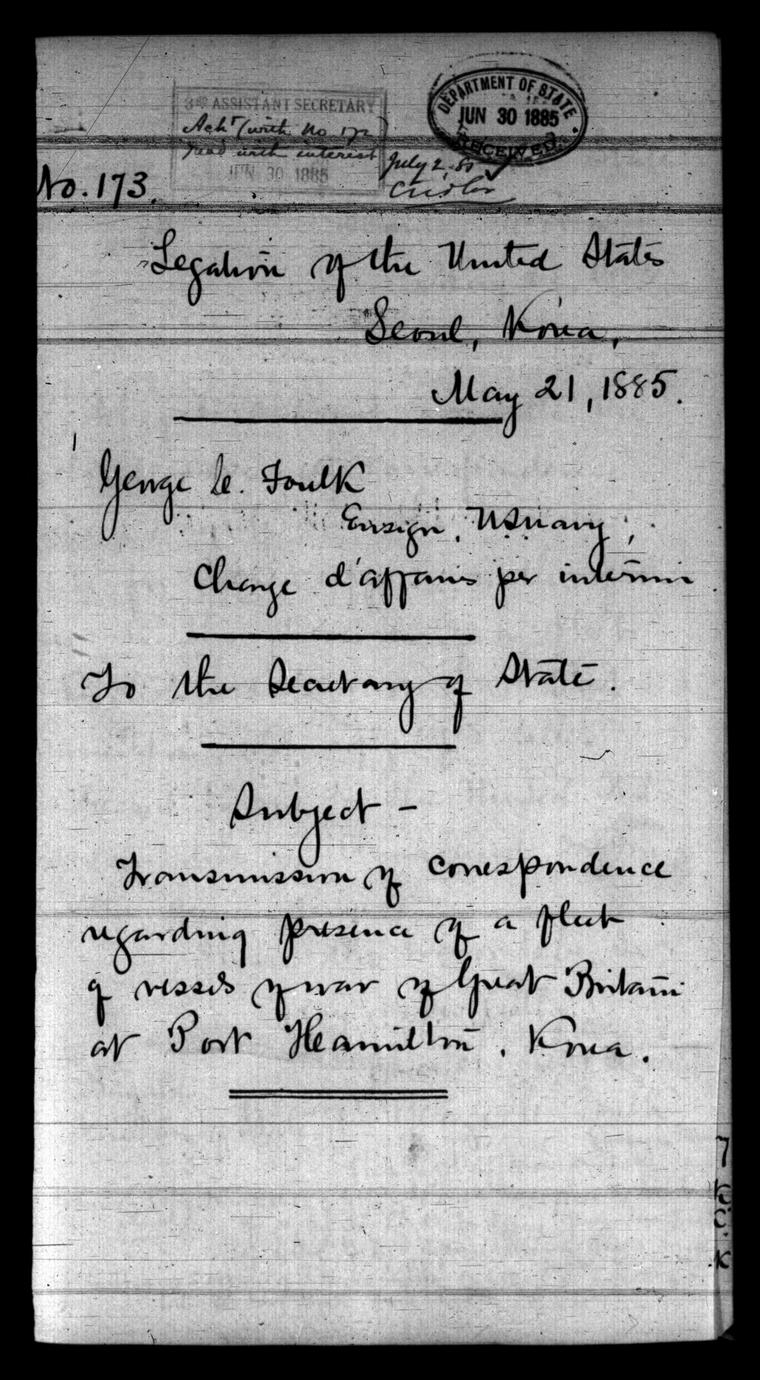 3RD ASSISTANT SECRETARY
Ackd (with No 172)
read with interest
JUN 30 1885
DEPARTMENT OF STATE
JUN 30 1885
RECEIVED
July 2. 85
No. 173.
Legation of the United States
Seoul, Korea,
May 21, 1885.
George C. Foulk
Ensign, US Navy,
Charge d'affaires per interim
To the Secretary of State.
Subject -
Transmission of correspondence
regarding presence of a fleet
of vessels of war of Great Britain
at Port Hamilton. Korea.